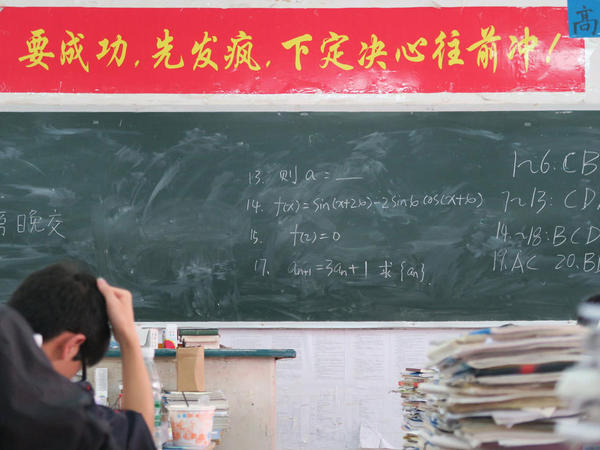 高
要成功,先发疯,下定决心往前冲!
日晚交
13. 则 a = __
14. f(x)=sin(x+2φ)-2sinφcos(x+φ)
15. f(2)=0
17. aₙ₊₁=3aₙ+1 求{aₙ}.
1~6. CB
7~13: CD
14~18: BCD
19. AC 20. B